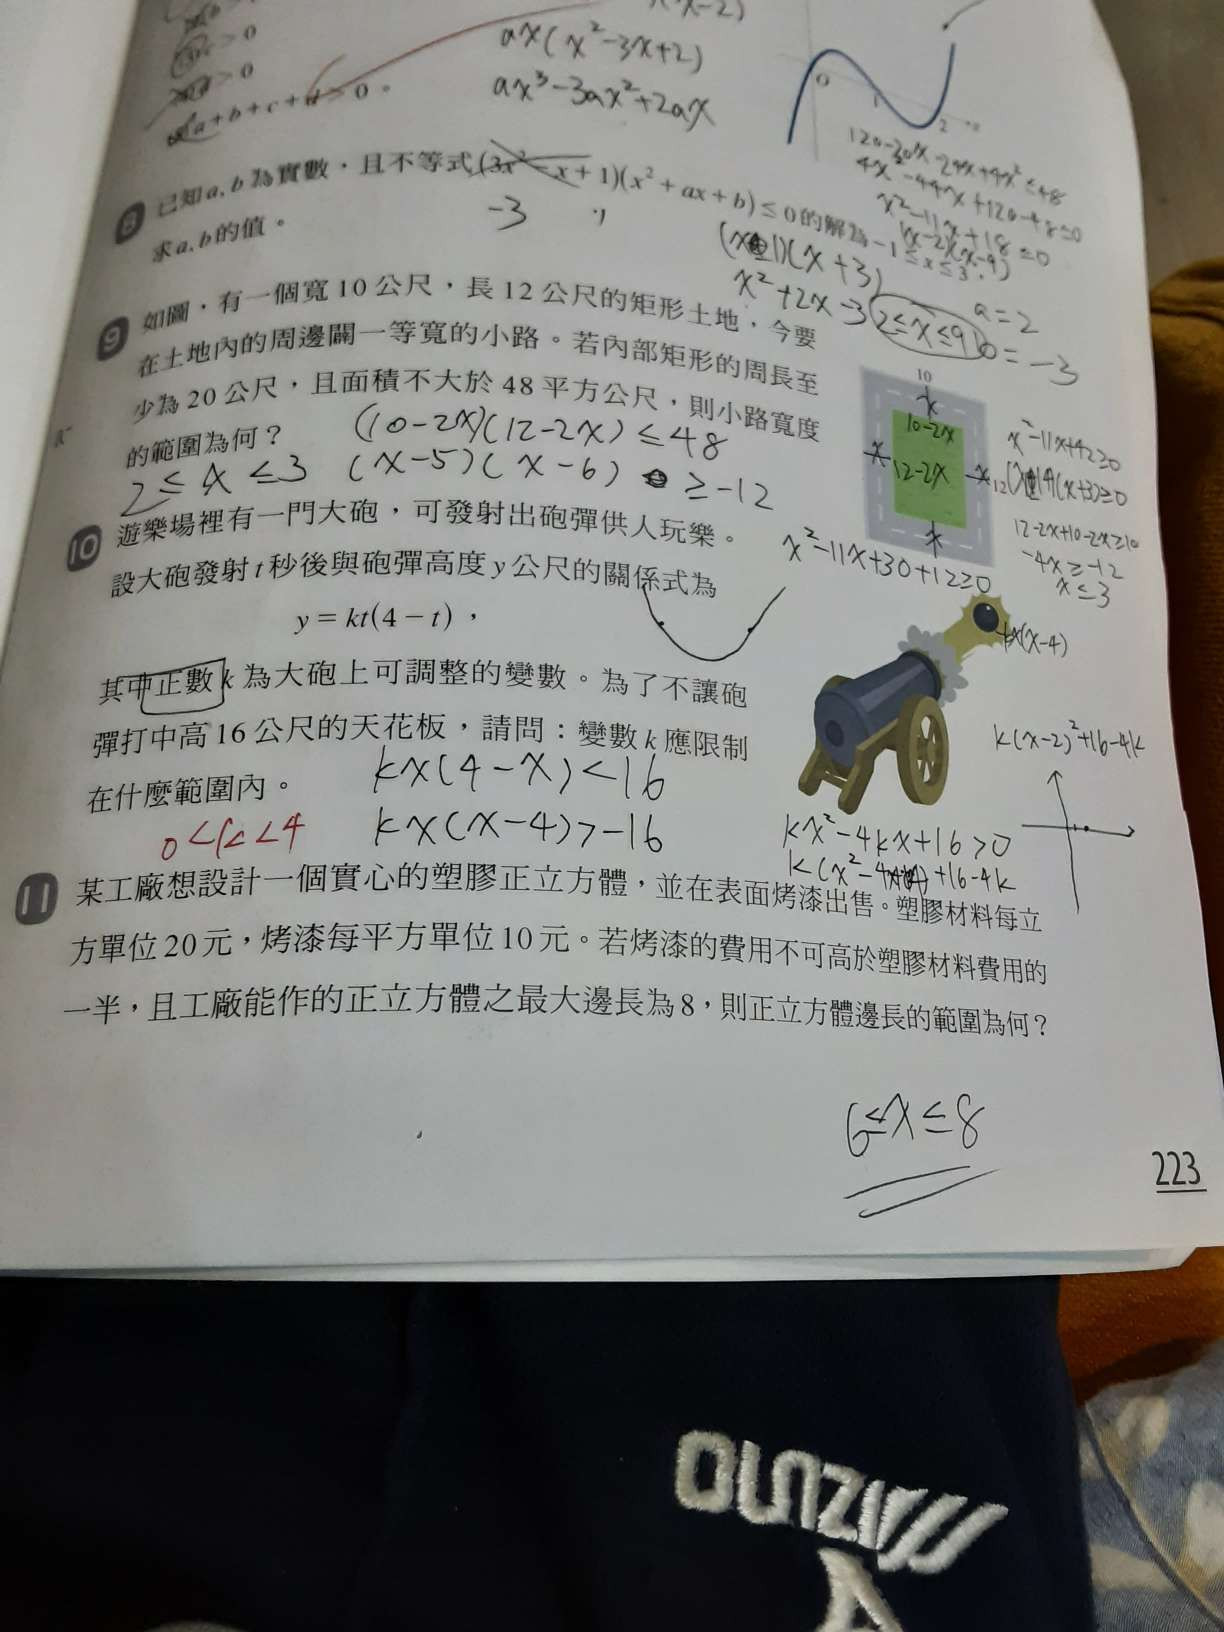 x(x-2)
ax(x²-3x+2)
ax³-3ax²+2ax
>0
>0
a+b+c+d>0。
0
1
2
120-20x-24x+4x²≤48
4x²-44x+120-48≤0
x²-11x+18≤0
(x-2)(x-9)
8 已知a, b為實數，且不等式(3x²-x+1)(x²+ax+b)≤0的解為-1≤x≤3，
求a, b的值。
-3
(x-1)(x+3)
x²+2x-3
a=2
b=-3
2≤x≤9
9 如圖，有一個寬10公尺，長12公尺的矩形土地，今要
在土地內的周邊闢一等寬的小路。若內部矩形的周長至
少為20公尺，且面積不大於48平方公尺，則小路寬度
的範圍為何？
(10-2x)(12-2x)≤48
2≤x≤3
(x-5)(x-6)≥-12
x²-11x+30+12≥0
10
x
10-2x
x
12-2x
x
12
x
x²-11x+42≥0
12-2x+10-2x≥10
-4x≥-12
x≤3
10 遊樂場裡有一門大砲，可發射出砲彈供人玩樂。
設大砲發射t秒後與砲彈高度y公尺的關係式為
y=kt(4-t)，
其中正數k為大砲上可調整的變數。為了不讓砲
彈打中高16公尺的天花板，請問：變數k應限制
在什麼範圍內。
kx(4-x)<16
kx(x-4)>-16
0<k<4
-kx(x-4)
k(x-2)²+16-4k
kx²-4kx+16>0
k(x²-4x+4)+16-4k
11 某工廠想設計一個實心的塑膠正立方體，並在表面烤漆出售。塑膠材料每立
方單位20元，烤漆每平方單位10元。若烤漆的費用不可高於塑膠材料費用的
一半，且工廠能作的正立方體之最大邊長為8，則正立方體邊長的範圍為何？
6≤x≤8
223
MIZUNO